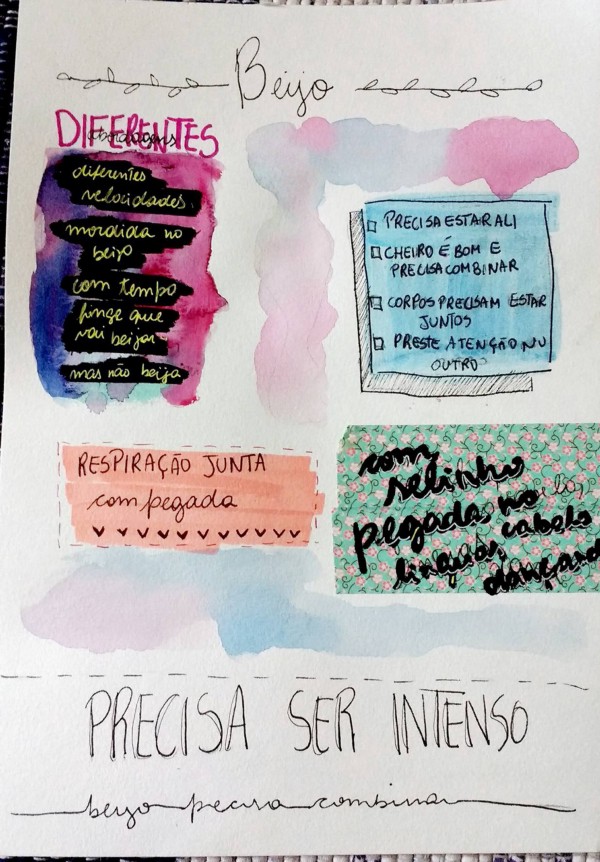 Beijo
DIFERENTES
abordagens
diferentes
velocidades
mordida no
beijo
com tempo
finge que
vai beijar
mas não beija
PRECISA ESTAR ALI
CHEIRO É BOM E
PRECISA COMBINAR
CORPOS PRECISAM ESTAR
JUNTOS
PRESTE ATENÇÃO NO
OUTRO
RESPIRAÇÃO JUNTA
com pegada
com
selinho
pegada no
línguas, cabelo
dançando
PRECISA SER INTENSO
beijo precisa combinar